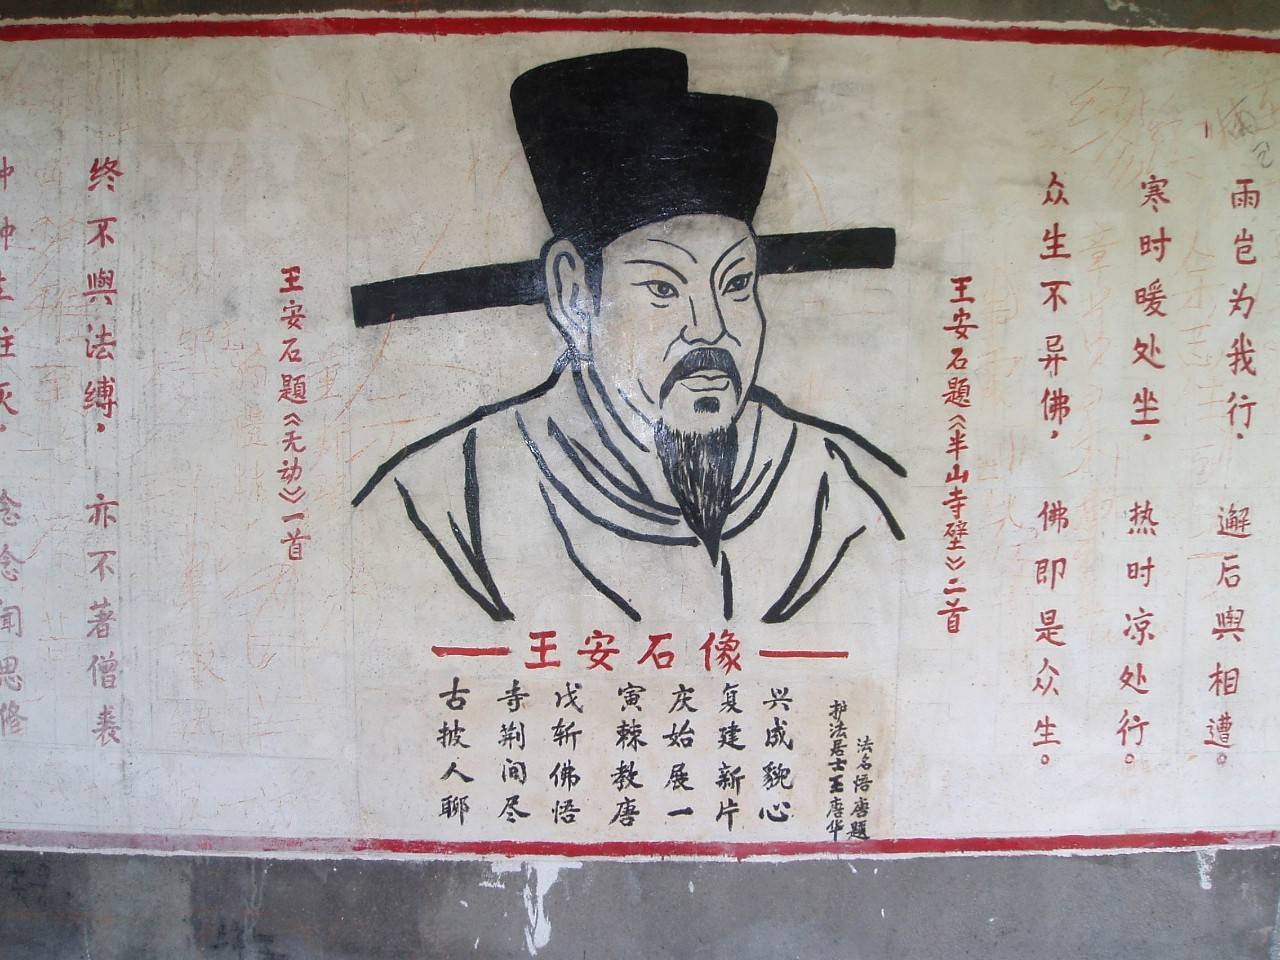 雨岂为我行，邂后與相遭。
寒时暖处坐，热时凉处行。
众生不异佛，佛即是众生。
王安石題《半山寺壁》二首
王安石像
古寺戊寅庆复兴
披荆斩棘始建成
人间佛教展新貌
聊尽悟唐一片心
护法居士王唐华
法名悟唐題
王安石題《无动》一首
终不與法縛，亦不著僧裘
种种生住灭，念念闻思修